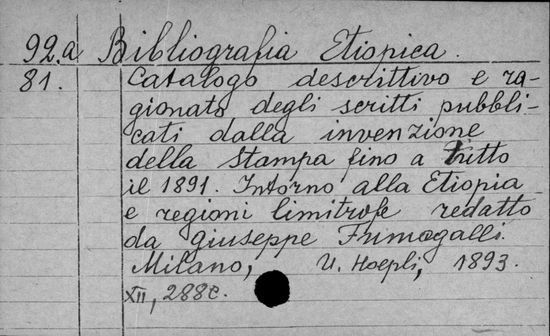 92.a Bibliografia Etiopica.
81. Catalogo descrittivo e ra-
gionato degli scritti pubbli-
cati dalla invenzione
della stampa fino a tutto
il 1891. Intorno alla Etiopia
e regioni limitrofe redatto
da Giuseppe Fumagalli.
Milano, U. Hoepli, 1893.
XII, 288c.